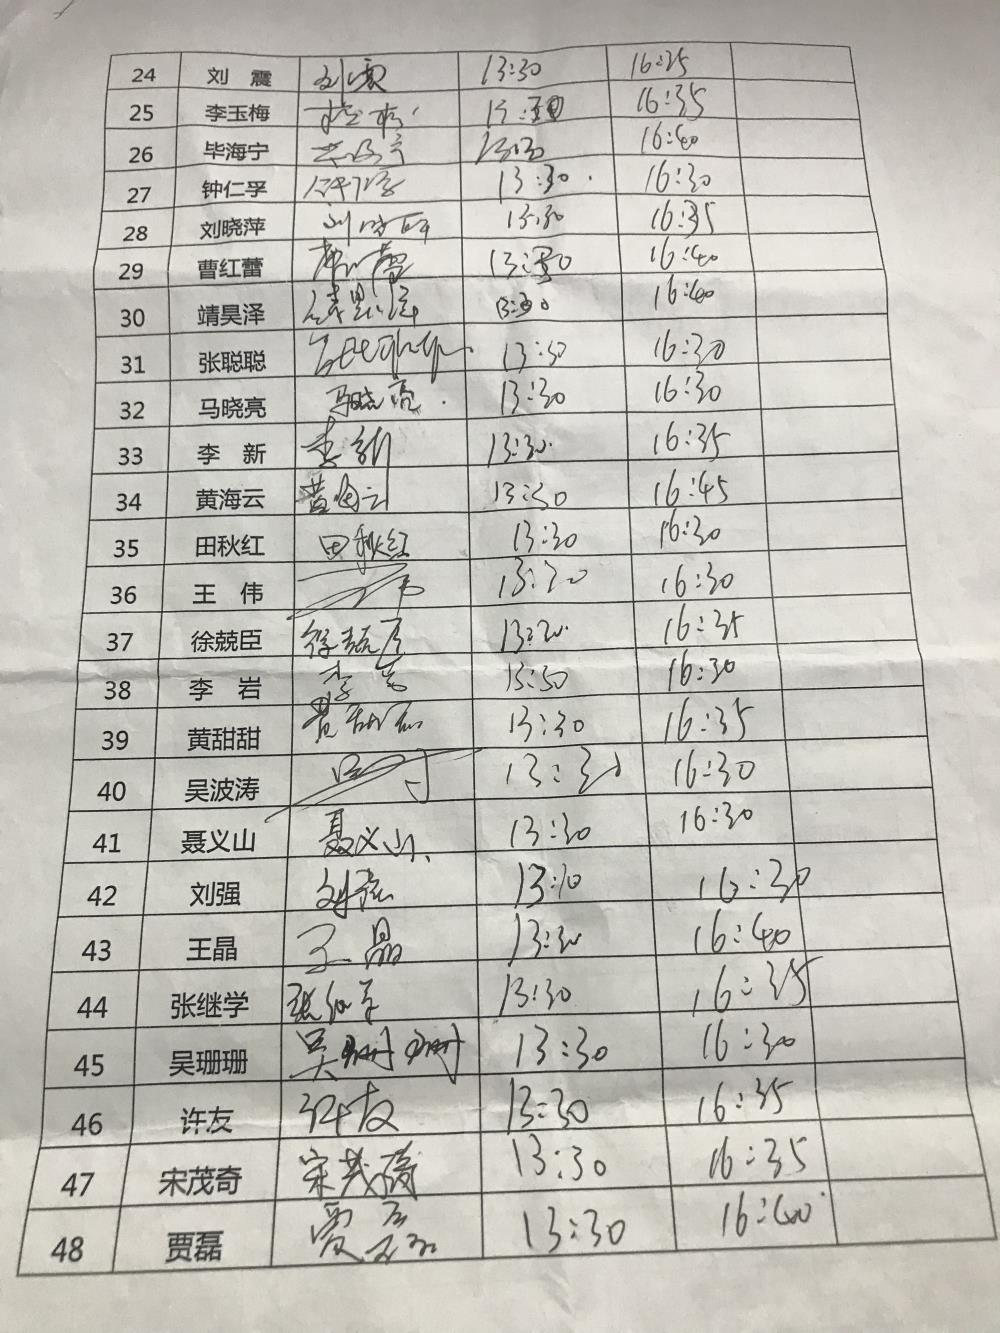 24 刘 震 刘震 13:30 16:25
25 李玉梅 16:35
26 毕海宁 13:30 16:40
27 钟仁孚 13:30 16:30
28 刘晓萍 13:30 16:35
29 曹红蕾 13:30 16:40
30 靖昊泽 13:30 16:40
31 张聪聪 13:30 16:30
32 马晓亮 马晓亮 13:30 16:30
33 李 新 李新 13:30 16:35
34 黄海云 黄海云 13:30 16:45
35 田秋红 田秋红 13:30 16:30
36 王 伟 13:30 16:30
37 徐兢臣 徐兢臣 13:30 16:35
38 李 岩 李岩 13:30 16:30
39 黄甜甜 13:30 16:35
40 吴波涛 13:30 16:30
41 聂义山 聂义山 13:30 16:30
42 刘强 刘强 16:30
43 王晶 王晶 13:30 16:40
44 张继学 张继学 13:30 16:35
45 吴珊珊 吴珊珊 13:30 16:30
46 许友 许友 13:30 16:35
47 宋茂奇 宋茂奇 13:30 16:35
48 贾磊 贾磊 13:30 16:40